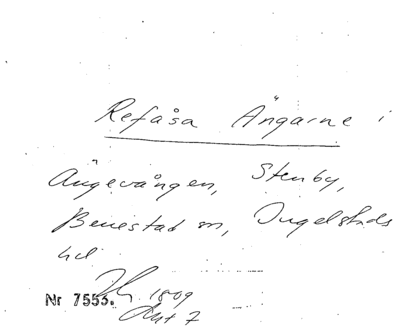 Refåsa Ängarne i
Ängevången, Stenby,
Benestad sn, Ingelstads
hd
Nr 7553. 1809
Akt 7